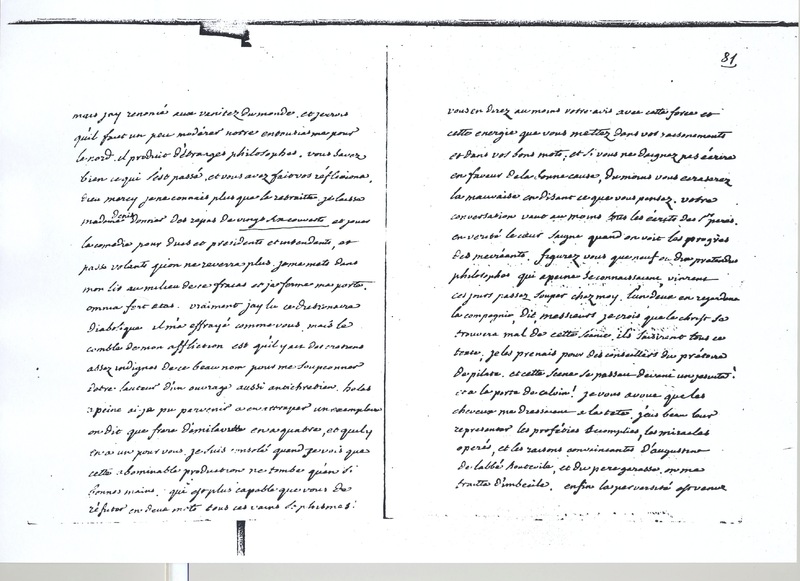 mais jay renoncé aux vanitez du monde. et je crois
quil faut un peu modérer notre entousiasme pour
le nord. il produit d'étranges philosophes. vous savez
bien ce qui s'est passé, et vous avez fait vos réflexions.
Dieu mercy je ne connais plus que la retraitte. je laisse
madame denis donner des repas de vingt six couverts et jouer
la comédie pour ducs et présidents et intendants, et
passe volants qu'on ne reverra plus. je me mets dans
mon lit au milieu de ce fracas et je ferme ma porte.
omnia fert etas. vraiment jay lu ce dictionaire
diabolique il m'a effrayé comme vous. mais le
comble de mon affliction est qu'il y ait des cretiens
assez indignes de ce beau nom pour me soupçonner
d'etre l'auteur d'un ouvrage aussi antichretien. helas
a peine ai je pu parvenir a en attraper un exemplaire
on dit que frere damilaville en a quatre, et quil y
en a un pour vous. je suis consolé quand je vois que
cette abominable production ne tombe qu'en si
bonnes mains. qui est plus capable que vous de
réfuter en deux mots tous ces vains sophismes!
81
vous en direz au moins votre avis avec cette force et
cette energie que vous mettez dans vos raisonements
et dans vos bons mots, et si vous ne daignez pas écrire
en faveur de la bonne cause, du moins vous écraserez
la mauvaise en disant ce que vous pensez. votre
conversation vaut au moins tous les écrits des Sts peres.
en verité le cœur saigne quand on voit les progrès
des mécréants. figurez vous que neuf ou dix prétendus
philosophes qui a peine se connaissaient, vinrent
ces jours passez souper chez moy. l'un deux en regardant
la compagnie, dit messieurs je crois que le christ se
trouvera mal de cette séance. ils saisirent tous ce
texte. je les prenais pour des conseillers du prétoire
de pilate. et cette scene se passait devant un jesuitte!
et a la porte de calvin! je vous avoue que les
cheveux me dressaient a la tete. j'eus beau leur
representer les proféties accomplies, les miracles
operés, et les raisons convaincantes d'augustin
de l'abbé houteville, et du pere garasse. on me
traitta d'imbécile. enfin la perversité est venue